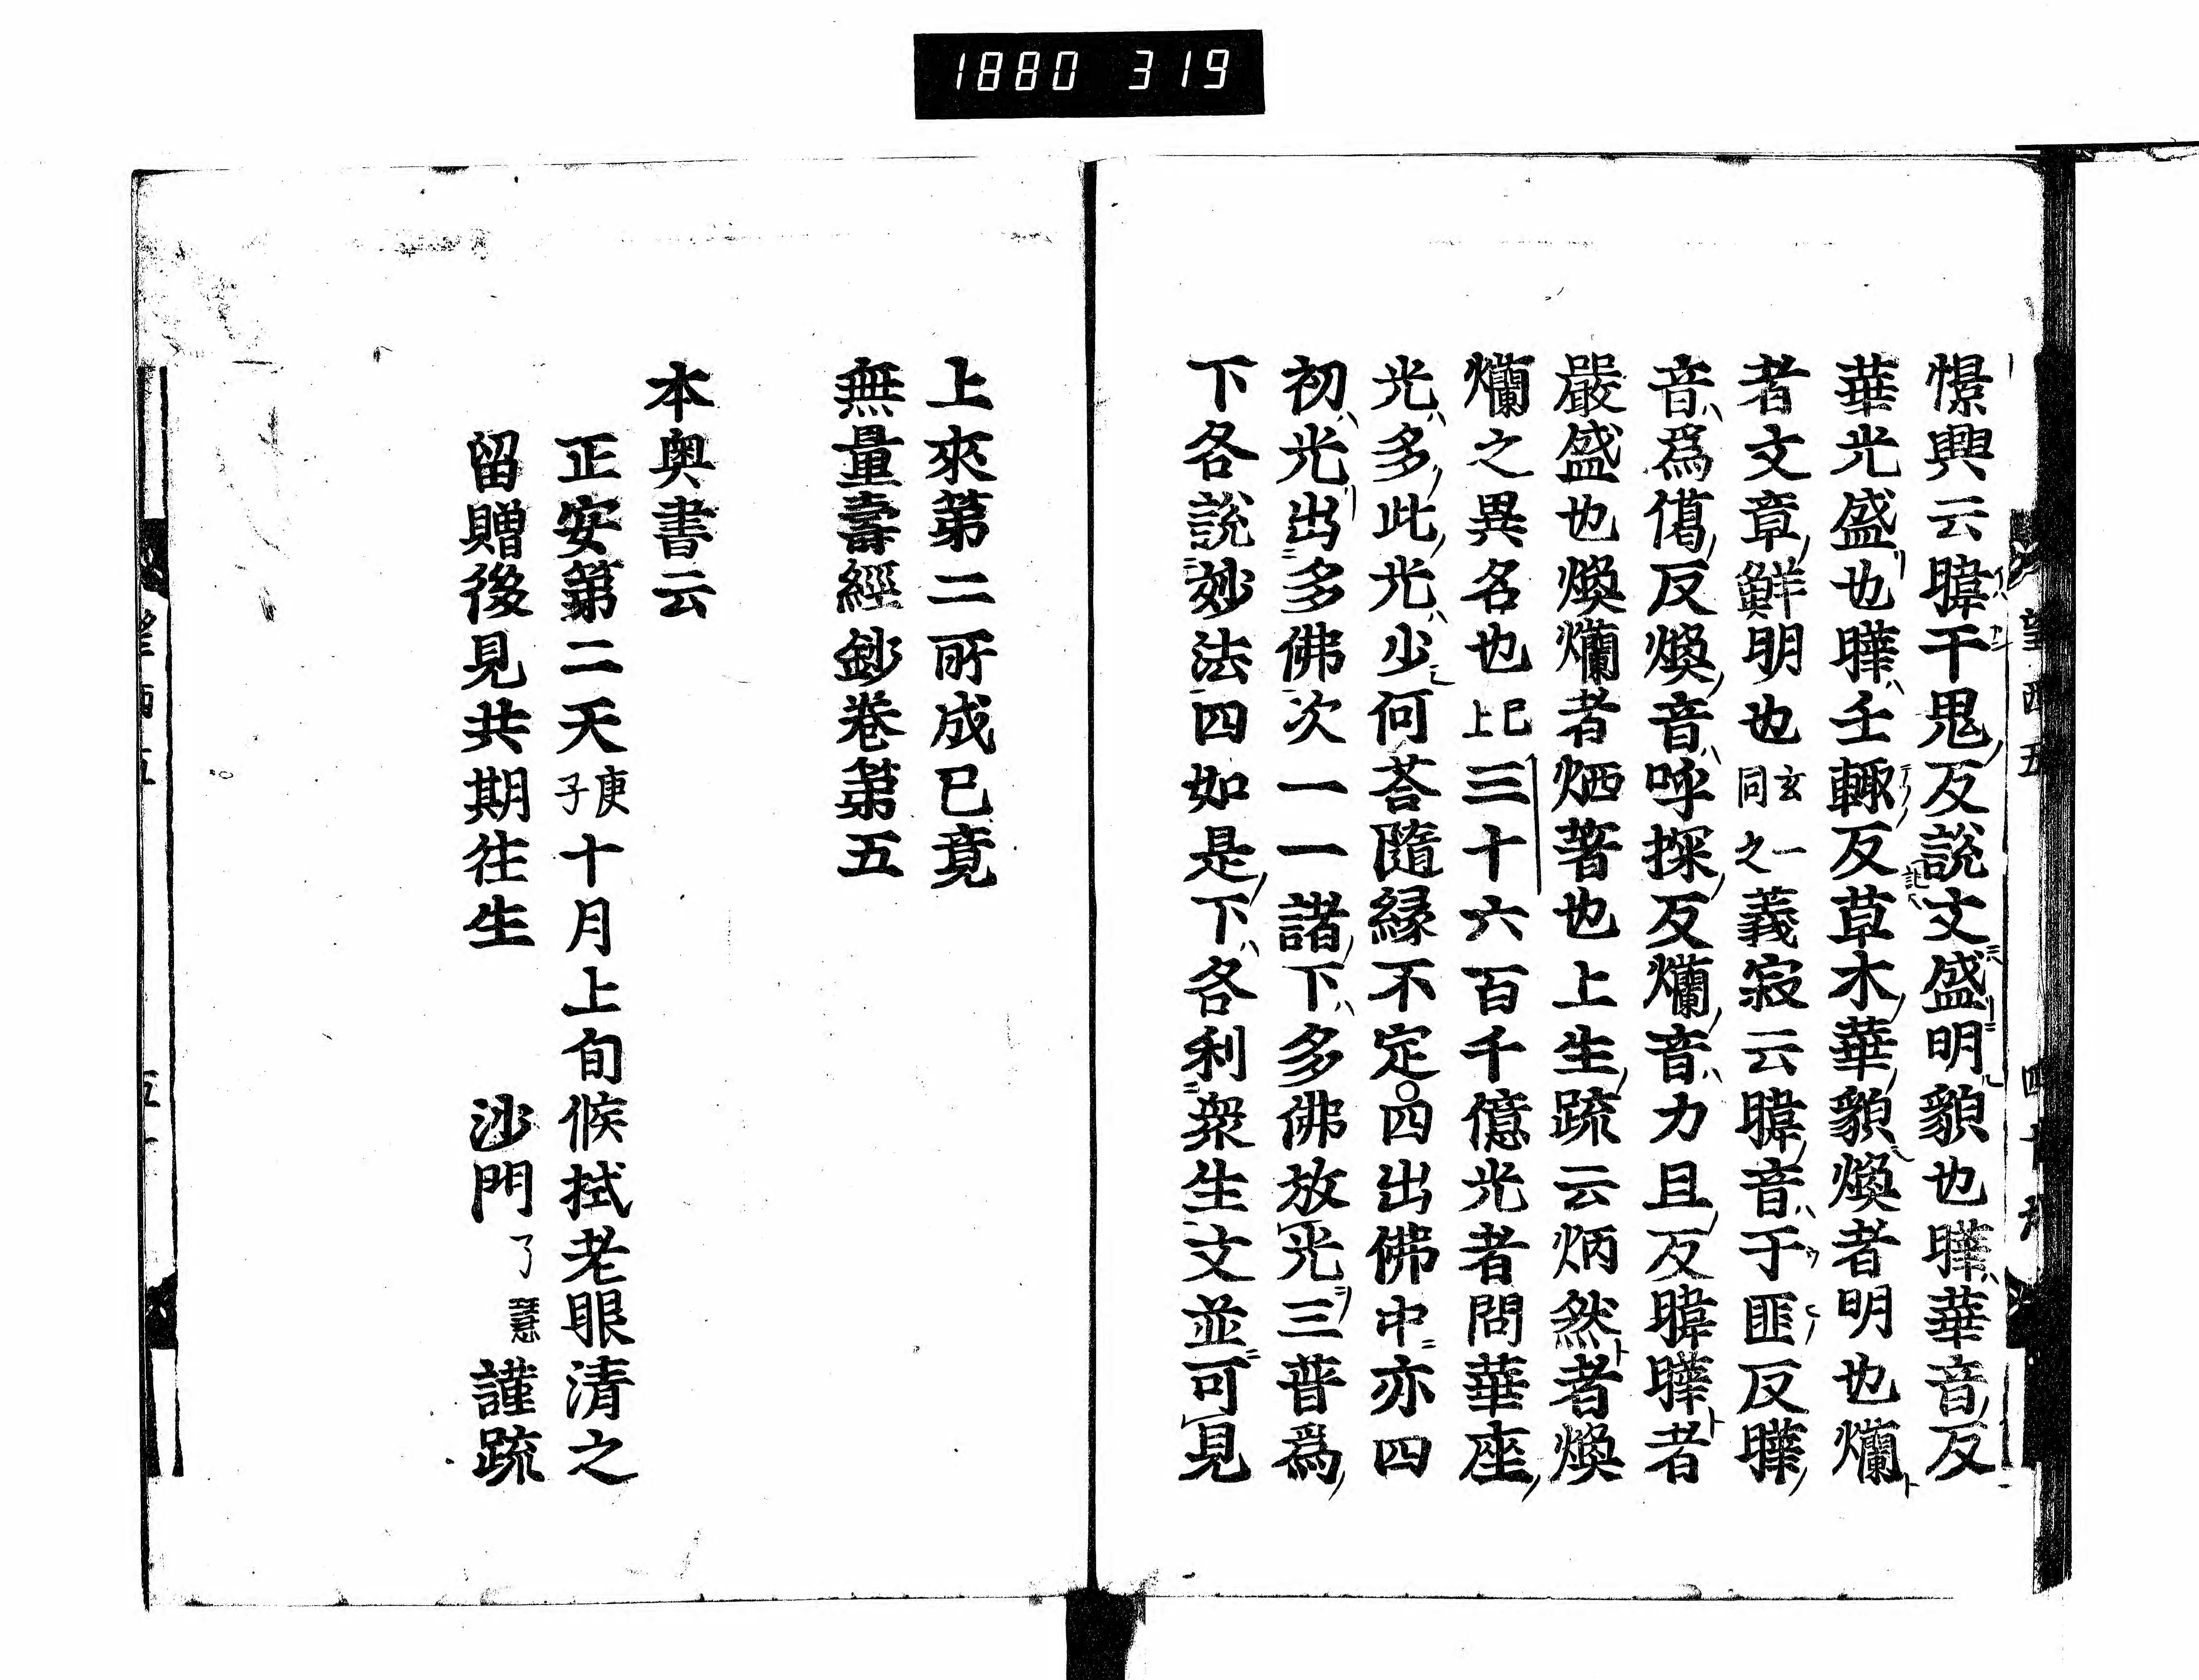 1880 319
憬興云暐干鬼反說文盛明貌也曄華音反
華光盛也曄壬輙反草木華貌煥者明也爛
者文章鮮明也玄一同之義寂云暐音于匪反曄
音爲偈反煥音呼探反爛音力且反暐曄者
嚴盛也煥爛者炳著也上生疏云炳然者煥
爛之異名也已上三十六百千億光者問華座
光多此光少何荅隨緣不定四出佛中亦四
初光出多佛次一一諸下多佛放光三普爲
下各說妙法四如是下各利衆生文並可見
上來第二所成已竟
無量壽經鈔卷第五
本奥書云
正安第二天庚子十月上旬候拭老眼清之
留贈後見共期往生 沙門了慧謹疏